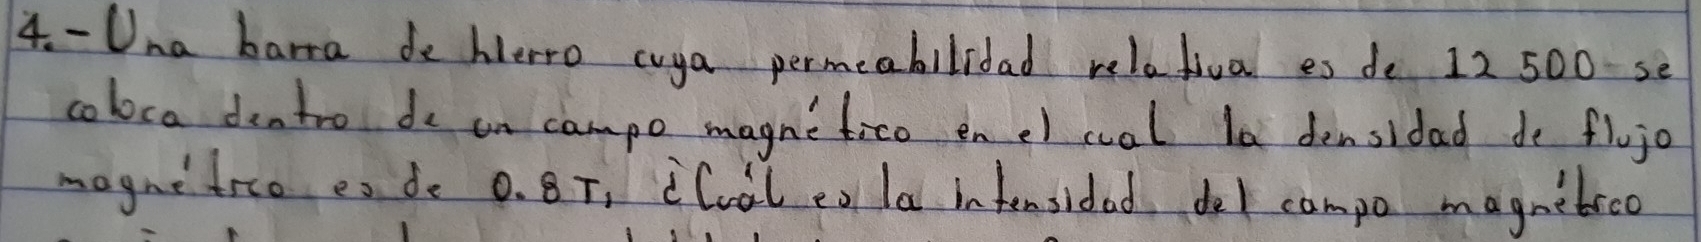 4.- Una barra de hierro cuya permeabilidad relativa es de 12 500 se
coloca dentro de un campo magnético en el cual la densidad de flujo
magnético es de 0.8 T, ¿Cuál es la intensidad del campo magnético